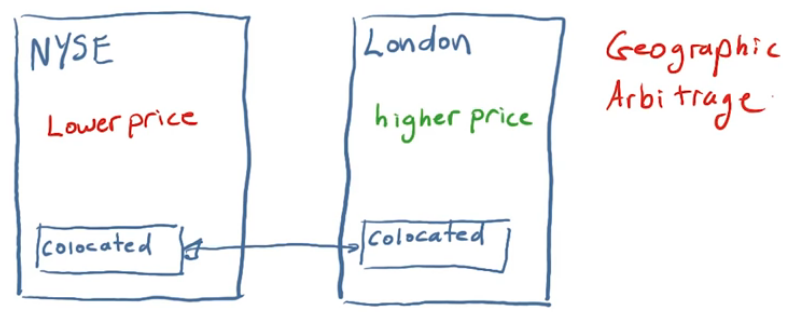 NYSE
Lower price
colocated
London
higher price
colocated
Geographic
Arbitrage